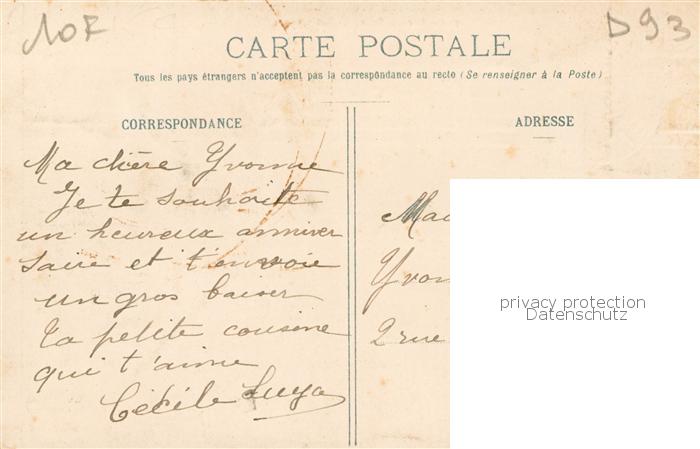 10F
D93
CARTE POSTALE
Tous les pays étrangers n'acceptent pas la correspondance au recto (Se renseigner à la Poste)
CORRESPONDANCE
ADRESSE
Ma chère Yvonne
Je te souhaite
un heureux anniver
saire et t'envoie
un gros baiser
Ta petite cousine
qui t'aime
Cécile
Yvon
2 rue
privacy protection
Datenschutz